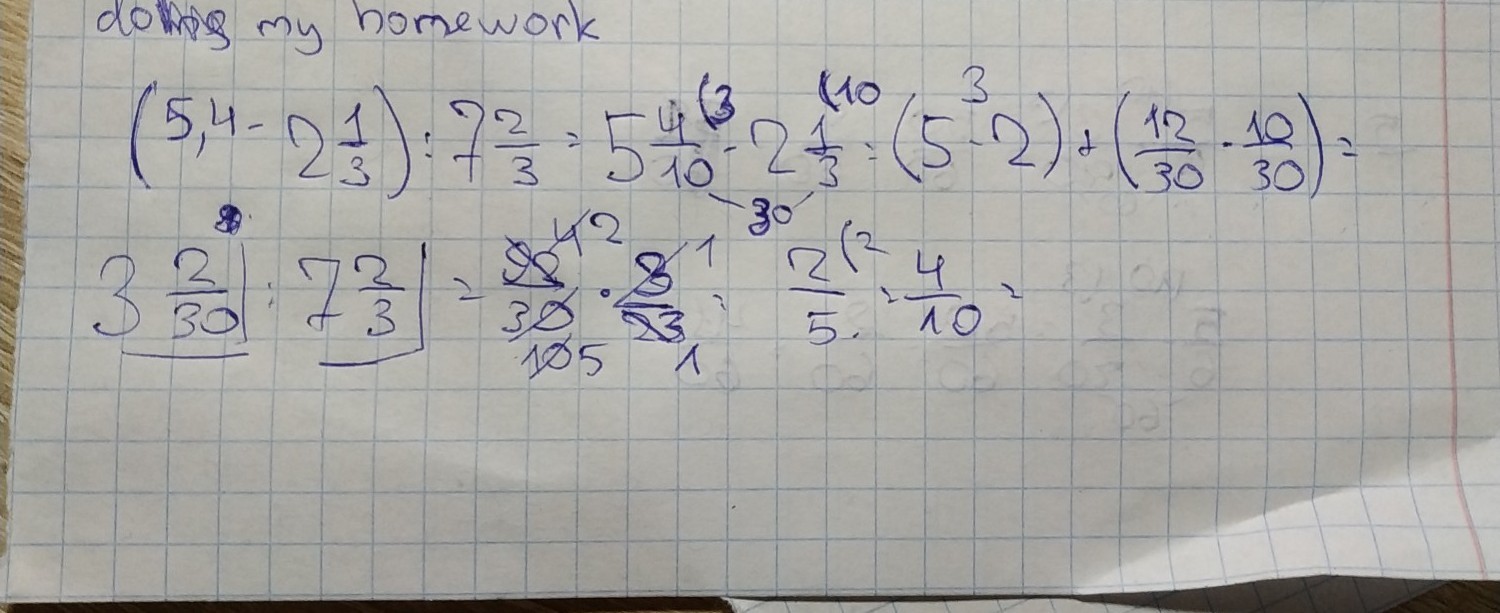 doing my homework
(5,4 - 2 1/3) : 7 2/3 = 5 4/10 (3 - 2 1/3 (10 = (5 - 2) 3 + (12/30 - 10/30) =
30
3 2/30 : 7 2/3 = 92/30 4 2 10 5 · 3/23 1 1 = 2/5 (2 = 4/10 =